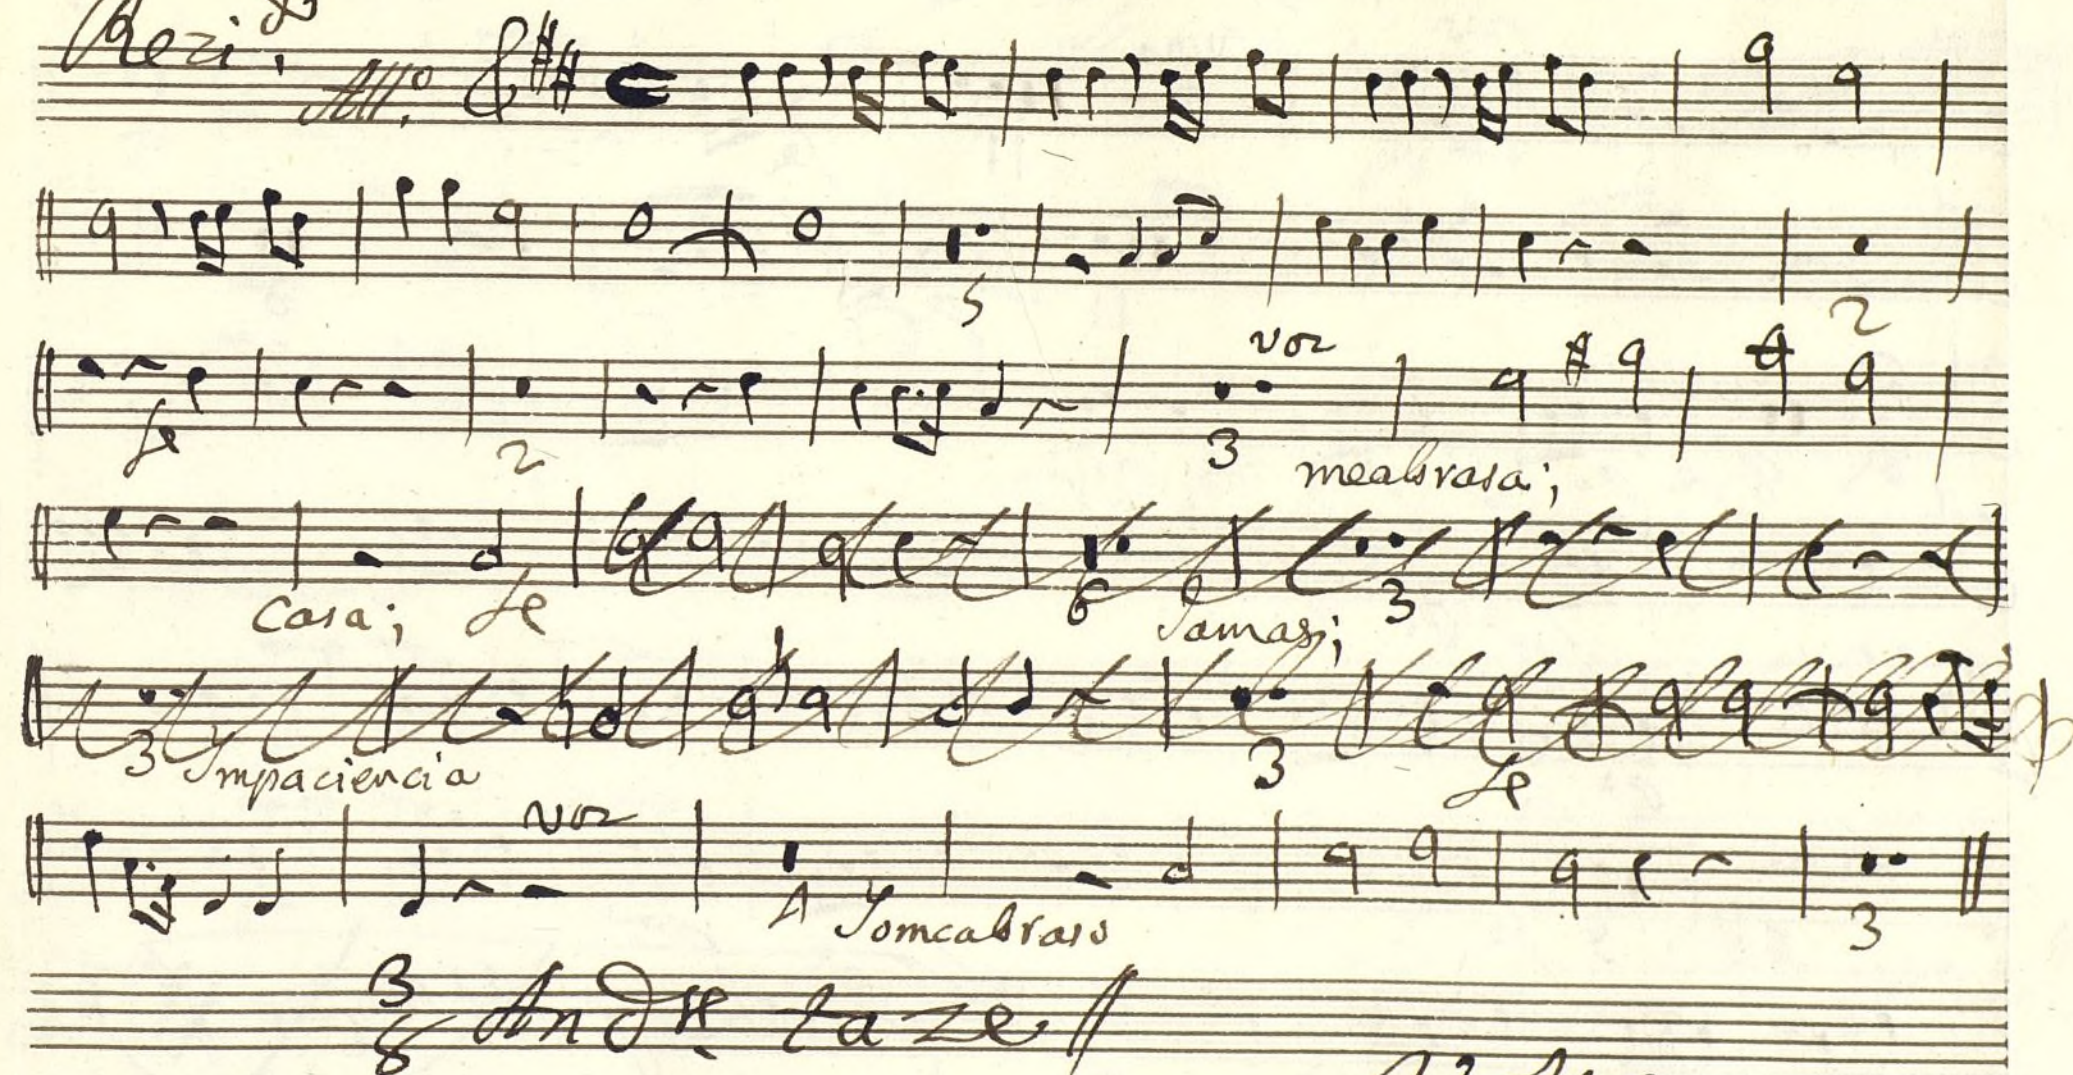 Rezi.do
All.o
5
2
voz
fe 2 3 meabrasa;
Casa; fe 6 Jamas; 3
3 Ympaciencia 3 fe
voz
A Yomeabraso 3
3/8 And.te taze //